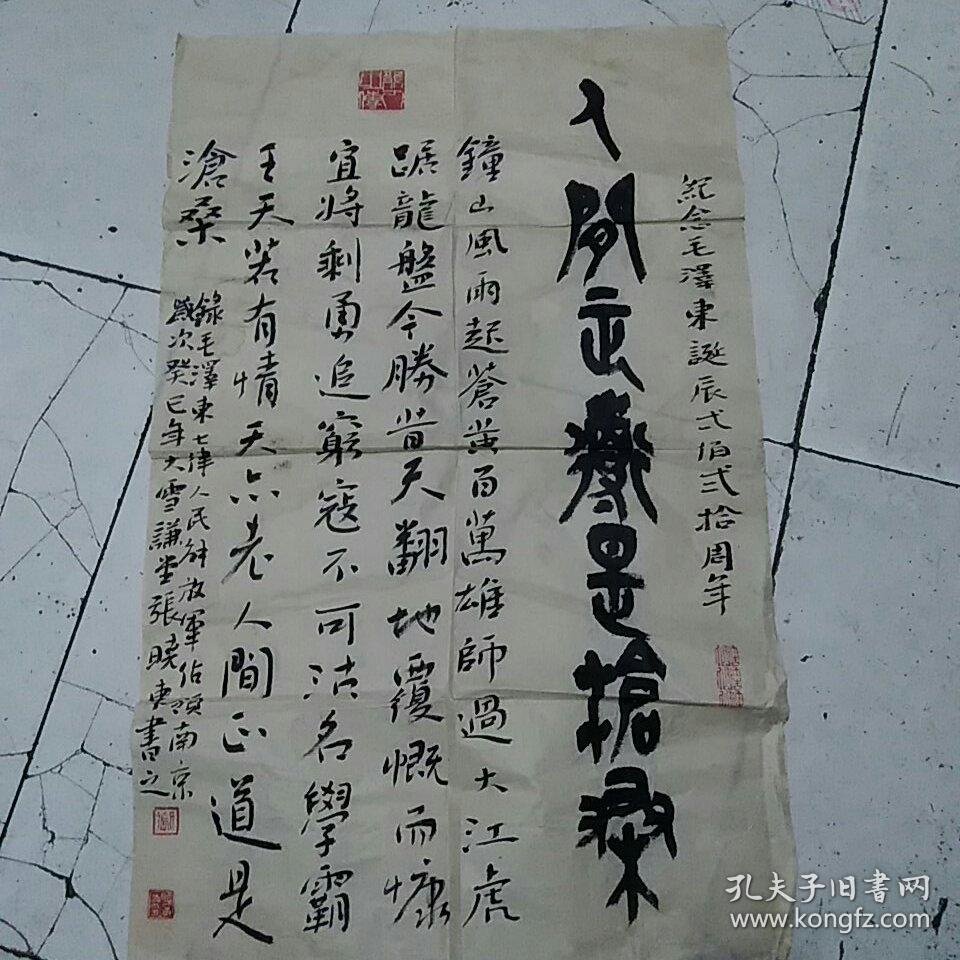 紀念毛澤東誕辰弌佰弍拾周年
人間正道是滄桑
鐘山風雨起蒼黄百萬雄師過大江虎
踞龍盤今勝昔天翻地覆慨而慷
宜將剩勇追窮寇不可沽名學霸
王天若有情天亦老人間正道是
滄桑
錄毛澤東七律人民解放軍佔領南京
歲次癸巳年大雪謙堂張曉東書之
孔夫子旧书网
www.kongfz.com